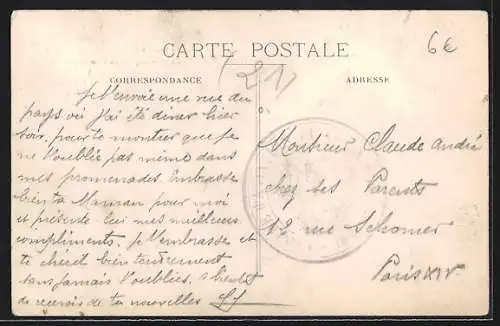 CARTE POSTALE
6€
(21)
CORRESPONDANCE
ADRESSE
Je t'envoie une vue du
pays où j'ai été diner hier
soir, pour te montrer que je
ne t'oublie pas même dans
mes promenades. Embrasse
bien ta Maman pour moi
et présente lui mes meilleurs
compliments. Je t'embrasse et
te chéris bien tendrement
sans jamais t'oublier. à bientôt
de recevoir de tes nouvelles
Monsieur Claude André
chez ses Parents
12 rue Schomer
Paris XIV